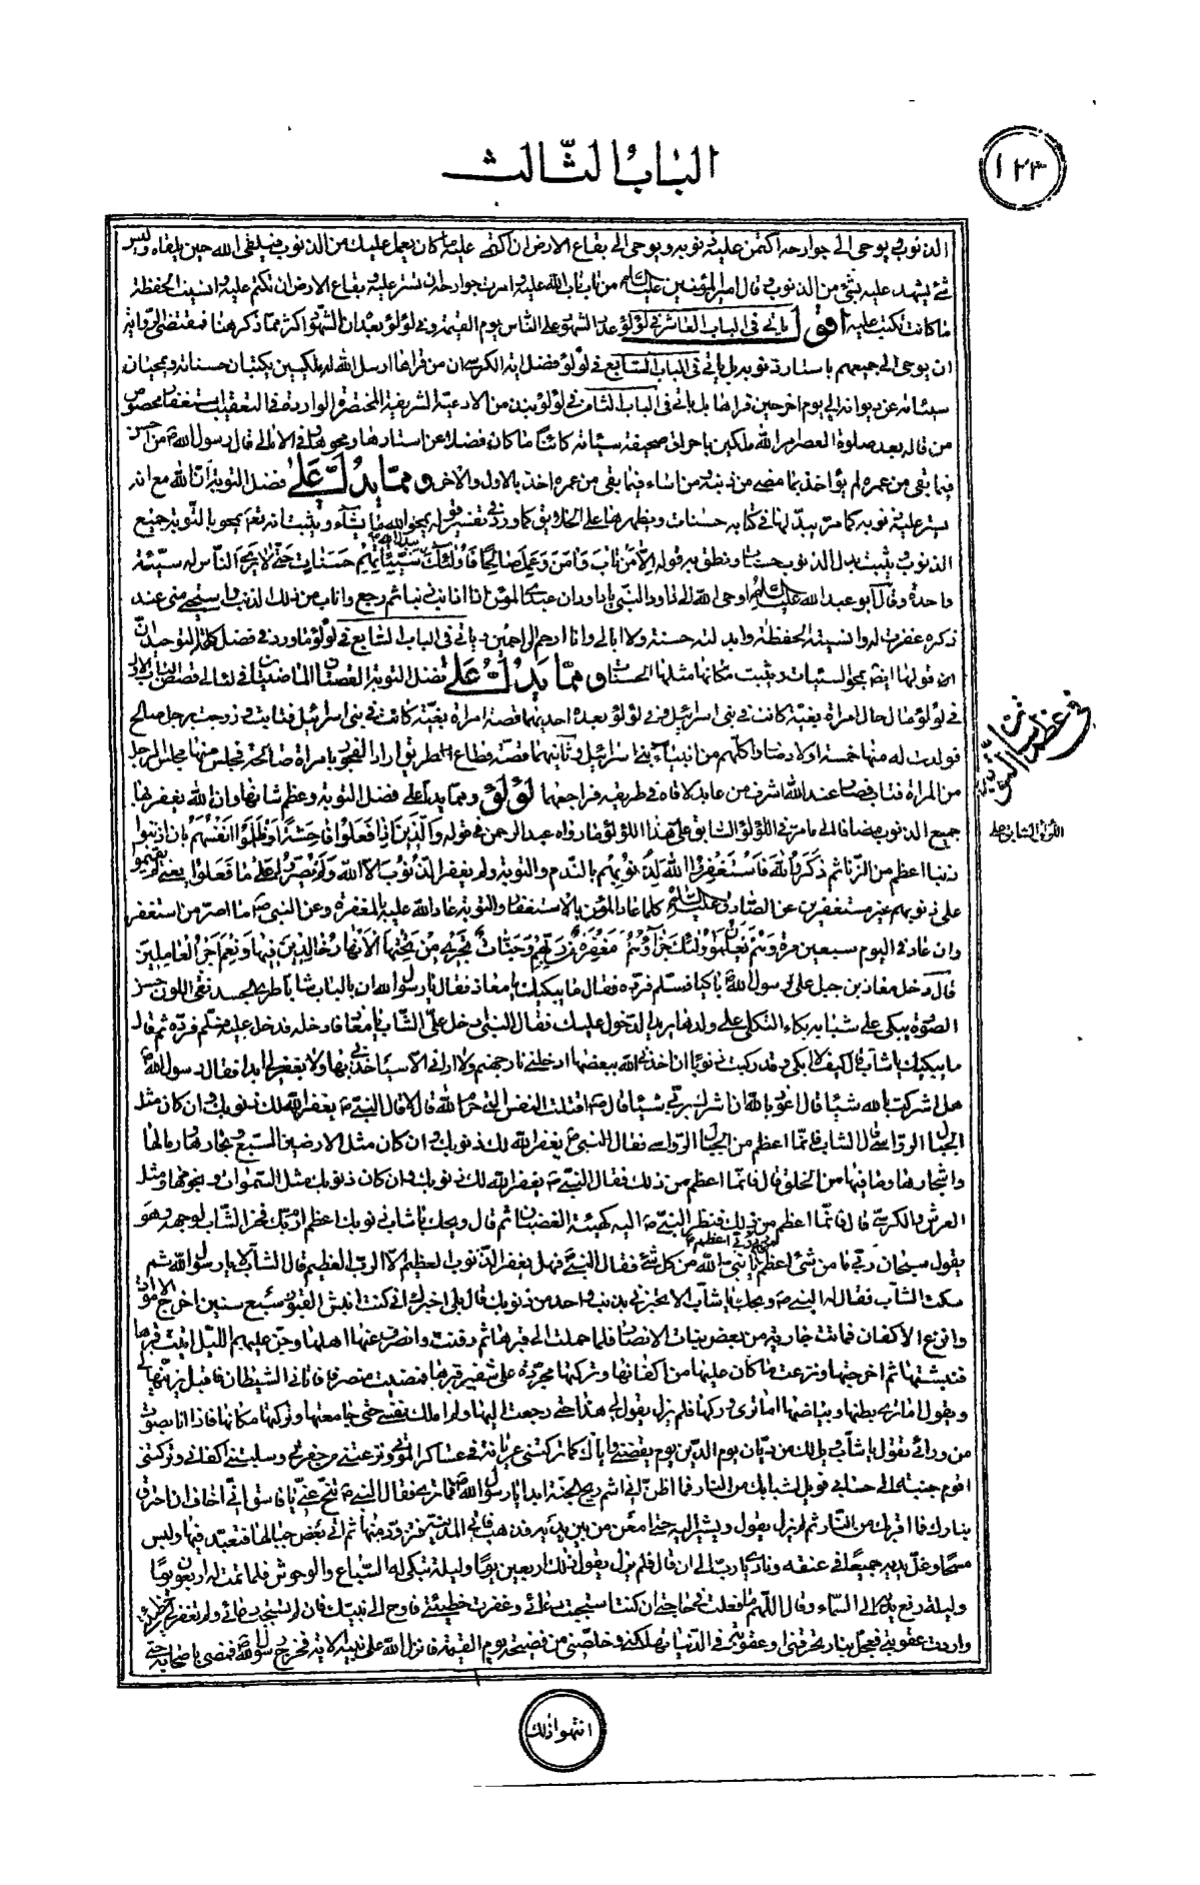 ١٢٣
الباب الثالث
الذنوب يوحى الى جوارحه اكتمى عليه ذنوبه ويوحى الى بقاع الارض ان اكتمى عليه ما كان يعمل عليك من الذنوب فيلقى الله حين يلقاه وليس
شئ يشهد عليه بشئ من الذنوب وقال امير المؤمنين عليه السلام من تاب تاب الله عليه وامرت جوارحه ان تستر عليه وبقاع الارض ان تكتم عليه وانسيت الحفظة
ما كانت تكتب عليه اقول يأتى فى الباب العاشر فى لؤلؤ عدد الشهود على الناس يوم القيمة وفى لؤلؤ بعده ان الشهود اكثر مما ذكر هنا فمقتضى الرواية
ان يوحى الى جميعهم باستار ذنوبه بل يأتى فى الباب السابع فى لؤلؤ فضل اية الكرسى ان من قراها ارسل الله له ملكين يكتبان حسناته ويمحيان
سيئاته عن ديوانه الى يوم اخر حين قراها بل يأتى فى الباب الثامن فى لؤلؤ نبذ من الادعية الشريفة المختصرة الواردة فى التعقيب استغفار مخصوص
من قاله بعد صلوة العصر امر الله ملكين باحراق صحيفة سيئاته كائنا ما كان فضلا عن استارها ومحوها وفى الامالى قال رسول الله ص من احسن
فيما بقى من عمره لم يؤاخذ بما مضى من ذنبه ومن اساء فيما بقى من عمره اخذ بالاول والاخر ومما يدل على فضل التوبة ان الله مع انه
يستر عليه ذنوبه كما مر يبدلها فى كتابه حسنات ويظهرها على الخلايق كما ورد فى تفسير قوله يمحو الله ما يشاء ويثبت انه تعالى يمحو بالتوبة جميع
الذنوب ويثبت بدل الذنوب حسنات ونطق به قوله الا من تاب وامن وعمل صالحا فاولئك يبدل الله سيئاتهم حسنات حتى لا يرى الناس له سيئة
واحدة وقال ابو عبد الله عليه السلام اوحى الله الى داود النبى يا داود ان عبدى المؤمن اذا اذنب ذنبا ثم رجع وتاب من ذلك الذنب واستحيى منى عند
ذكره غفرت له وانسيته الحفظة وابدلته حسنة ولا ابالى وانا ارحم الراحمين ويأتى فى الباب السابع فى لؤلؤ ما ورد فى فضل كلمة التوحيد ان
من قولها ايضا يمحو السيئات ويثبت مكانها مثلها الحسنات ومما يدل على فضل التوبة القصتان الماضيتان فى لئالى قصص الباب الاول
فى لؤلؤ مآل حال امراة بغية كانت فى بنى اسرائيل وفى لؤلؤ بعده احديهما قصة امراة بغية كانت فى بنى اسرائيل فتابت وزوجت برجل صالح
فولدت له منها خمسة اولاد صاروا كلهم من انبياء بنى اسرائيل وثانيهما قصة قطاع الطريق اراد الفجور بامراة صالحة فجلس منها مجلس الرجل
من المراة فتاب فصار عند الله اشرف من عابد لاقاه فى طريقه فراجعهما لؤلؤ ومما يدل على فضل التوبة وعظم شانها وان الله يغفر بها
جميع الذنوب مضافا الى ما مر فى اللؤلؤ السابق على هذا اللؤلؤ ما رواه عبد الرحمن فى قوله والذين اذا فعلوا فاحشة او ظلموا انفسهم بان اذنبوا
ذنبا اعظم من الزنا ثم ذكروا الله فاستغفروا الله لذنوبهم بالندم والتوبة ولم يغفر الذنوب الا الله ولم يصروا على ما فعلوا يعنى لم يقيموا
على ذنوبهم غير مستغفرين عن الصادق عليه السلام كلما عاد المؤمن بالاستغفار والتوبة عاد الله عليه بالمغفرة وعن النبى ص ما اصر من استغفر
وان عاد فى اليوم سبعين مرة وهم يعلمون اولئك جزاؤهم مغفرة من ربهم وجنات تجرى من تحتها الانهار خالدين فيها ونعم اجر العاملين
قال دخل معاذ بن جبل على رسول الله باكيا فسلم فرد ه فقال ما يبكيك يا معاذ فقال يا رسول الله ان بالباب شابا طرى الجسد نقى اللون حسن
الصورة يبكى على شبابه بكاء الثكلى على ولدها يريد الدخول عليك فقال النبى ادخل على الشاب يا معاذ فادخله فدخل عليه فسلم فرد ه ثم قال
ما يبكيك يا شاب قال كيف لا ابكى وقد ركبت ذنوبا ان اخذنى الله ببعضها ادخلنى نار جهنم ولا ارانى الا سيأخذنى بها ولا يغفر لى ابدا فقال رسول الله
هل اشركت بالله شيئا قال اعوذ بالله ان اشرك بربى شيئا قال ص اقتلت النفس التى حرم الله قال لا قال النبى ص يغفر الله لك ذنوبك وان كان مثل
الجبال الرواسى قال الشاب فانها اعظم من الجبال الرواسى فقال النبى ص يغفر الله لك ذنوبك وان كان مثل الارضين السبع وبحارها ورمالها
واشجارها وما فيها من الخلق قال فانها اعظم من ذلك فقال النبى ص يغفر الله لك ذنوبك وان كان ذنوبك مثل السموات ونجومها ومثل
العرش والكرسى قال فانها اعظم من ذلك فنظر النبى ص اليه كهيئة الغضبان ثم قال ويحك يا شاب ذنوبك اعظم ام ربك فخر الشاب لوجهه وهو
يقول سبحان ربى ما من شئ اعظم من ربى ربى اعظم يا نبى الله من كل شئ فقال النبى فهل يغفر الذنوب العظيم الا الرب العظيم قال الشاب لا يا رسول الله ثم
سكت الشاب فقال له النبى ص ويحك يا شاب الا تخبرنى بذنب واحد من ذنوبك قال بلى اخبرك انى كنت انبش القبور سبع سنين اخرج الاموات
وانزع الاكفان فماتت جارية من بعض بنات الانصار فلما حملت الى قبرها ثم دفنت وانصرف عنها اهلها وجن عليهم الليل اتيت قبرها
فنبشتها ثم اخرجتها ونزعت ما كان عليها من اكفانها وتركتها مجردة على شفير قبرها فمضيت منصرفا فاتانى الشيطان فاقبل يزينها لى
ويقول اما ترى بطنها وبياضها اما ترى وركها فلم يزل يقول لى هذا حتى رجعت اليها ولم املك نفسى حتى جامعتها وتركتها مكانها فاذا انا بصوت
من ورائى يقول يا شاب ويل لك من ديان يوم الدين يوم يقفنى واياك كما تركتنى عريانة فى عساكر الموتى ونزعتنى من حفرتى وسلبتنى اكفانى وتركتنى
اقوم جنبة الى حسابى فويل لشبابك من النار فما اظن انى اشم ريح الجنة ابدا يا رسول الله فما ترى فقال النبى ص تنح عنى يا فاسق انى اخاف ان احترق
بنارك فما اقربك من النار ثم لم يزل يقول ويشير اليه حتى امعن من بين يديه فذهب فاتى المدينة فتزود منها ثم اتى بعض جبالها فتعبد فيها ولبس
مسحا وغل يديه جميعا الى عنقه ونادى يا رب الى ان قال فلم يزل يقول ذلك اربعين يوما وليلة تبكى له السباع والوحوش فلما تمت له اربعون يوما
وليلة رفع يديه الى السماء وقال اللهم ما فعلت فى حاجتى ان كنت استجبت دعائى وغفرت خطيئتى فاوح الى نبيك فان لم تستجب دعائى ولم تغفر لى خطيئتى
واردت عقوبتى فعجل بنار تحرقنى او عقوبة فى الدنيا تهلكنى وخلصنى من فضيحة يوم القيمة فانزل الله على نبيه الاية فخرج رسول الله فمضى باصحابه حتى
فى عظم شان التوبة
اللؤلؤ السابق على
انتهوا ذلك